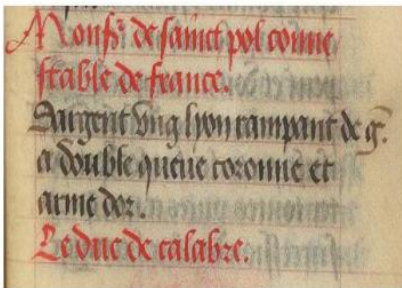 Monsr de sainct pol conne
stable de france.
Dargent Vng lyon rampant de g.
a double queue coronne et
arme dor.
Le duc de calabre.